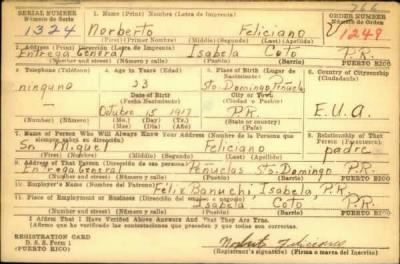 SERIAL NUMBER
Número de Serie
1. Name (Print) Nombre (Letra de Imprenta)
ORDER NUMBER
Número de Orden
1324 Norberto Feliciano V1248
(First) (Primer Nombre) (Middle) (Segundo) (Last) (Apellido)
2. Address (Print) Dirección (Letra de Imprenta)
Entrega General Isabela Coto P.R.
(Number and street) (Número y calle) (Town) (Pueblo) (Barrio) PUERTO RICO
3. Telephone (Teléfono)
4. Age in Years (Edad)
5. Place of Birth (Lugar de Nacimiento)
6. Country of Citizenship (Ciudadanía)
ninguno 23 Sto. Domingo Peñuelas
Date of Birth
(Fecha Nacimiento)
City or Town
(Ciudad o Pueblo)
Octubre 15 1917 P.R. E.U.A.
(Number) (Número) (Mo.) (Mes) (Day) (Día) (Yr.) (Año) (Country) (País)
7. Name of Person Who Will Always Know Your Address (Nombre de la Persona que siempre sabrá su dirección)
8. Relationship of That Person (Parentesco)
Sr. Miguel Feliciano padre
(First) (Primer Nombre) (Middle) (Segundo) (Last) (Apellido)
9. Address of That Person (Dirección de esa persona)
Entrega General Peñuelas Sto. Domingo P.R.
(Number and street) (Número y calle) (Town) (Pueblo) (Barrio) PUERTO RICO
10. Employer's Name (Nombre del Patrono)
Félix Banuchi, Isabela, P.R.
11. Place of Employment or Business (Dirección del empleo o negocio)
Isabela Coto P.R.
(Number and street) (Número y calle) (Town) (Pueblo) (Barrio) PUERTO RICO
I Affirm That I Have Verified Above Answers and That They Are True.
(Afirmo que he verificado las contestaciones que preceden y que todas son correctas.)
REGISTRATION CARD
D. S. S. Form 1
(PUERTO RICO)
Norberto Feliciano
(Registrant's signature) (Firma o marca del Inscrito)